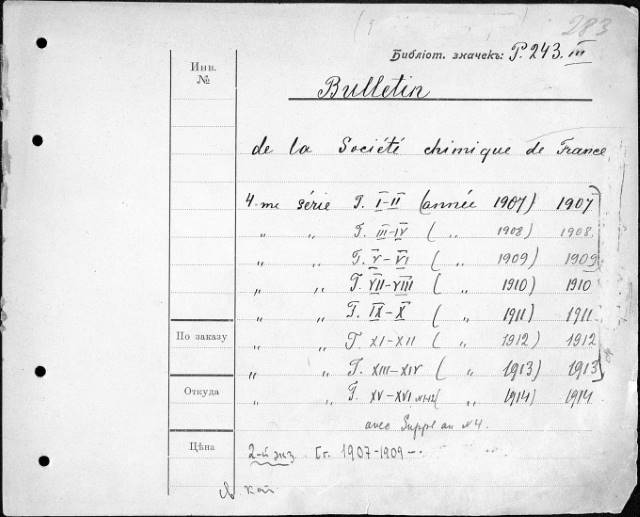 283
Библіот. значекъ: P. 243. III
Инв.
№
Bulletin
de la Société chimique de France
4-me série T. I-II (année 1907) 1907
" " T. III-IV ( " 1908) 1908.
" " T. V-VI ( " 1909) 1909
" " T. VII-VIII ( " 1910) 1910
" " T. IX-X ( " 1911) 1911.
По заказу
" " T. XI-XII ( " 1912) 1912
" " T. XIII-XIV ( " 1913) 1913
Откуда
" " T. XV-XVI ( " 1914) 1914
avec Suppl au N4.
Цѣна
2-й экз. 1907-1909-